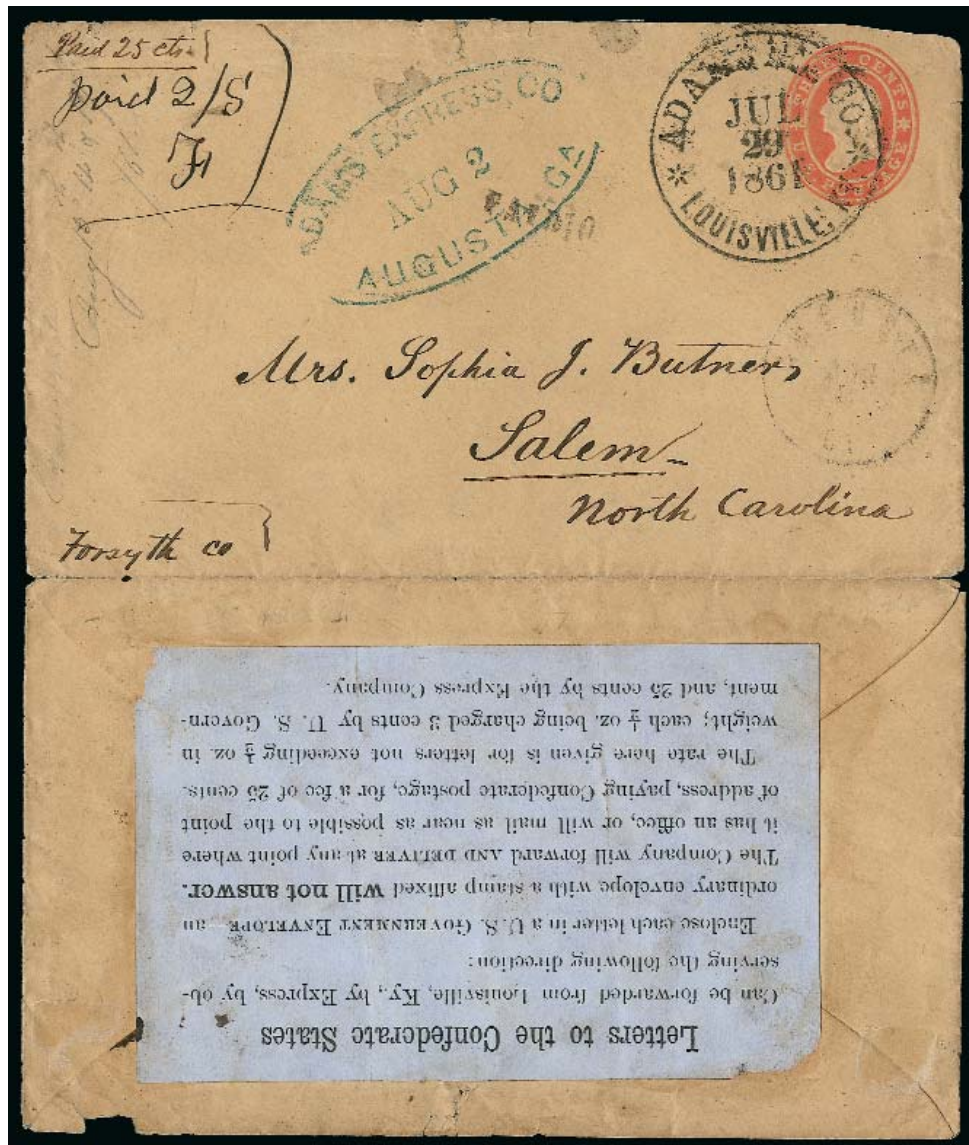 Paid 25 cts
paid 2/S
F
ADAMS EXPRESS, CO
AUG 2
AUGUSTA, GA
ADAMS EX. CO.
JUL
29
1861
* LOUISVILLE,
THREE CENTS
U.S. POSTAGE
PAID 10
Mrs. Sophia J. Butner,
Salem
North Carolina
Forsyth co
Letters to the Confederate States
Can be forwarded from Louisville, Ky., by Express, by ob-
serving the following direction:
Enclose each letter in a U. S. GOVERNMENT ENVELOPE an
ordinary envelope with a stamp affixed will not answer.
The Company will forward AND DELIVER at any point where
it has an office, or will mail as near as possible to the point
of address, paying Confederate postage, for a fee of 25 cents.
The rate here given is for letters not exceeding ½ oz. in
weight; each ½ oz. being charged 3 cents by U. S. Govern-
ment, and 25 cents by the Express Company.